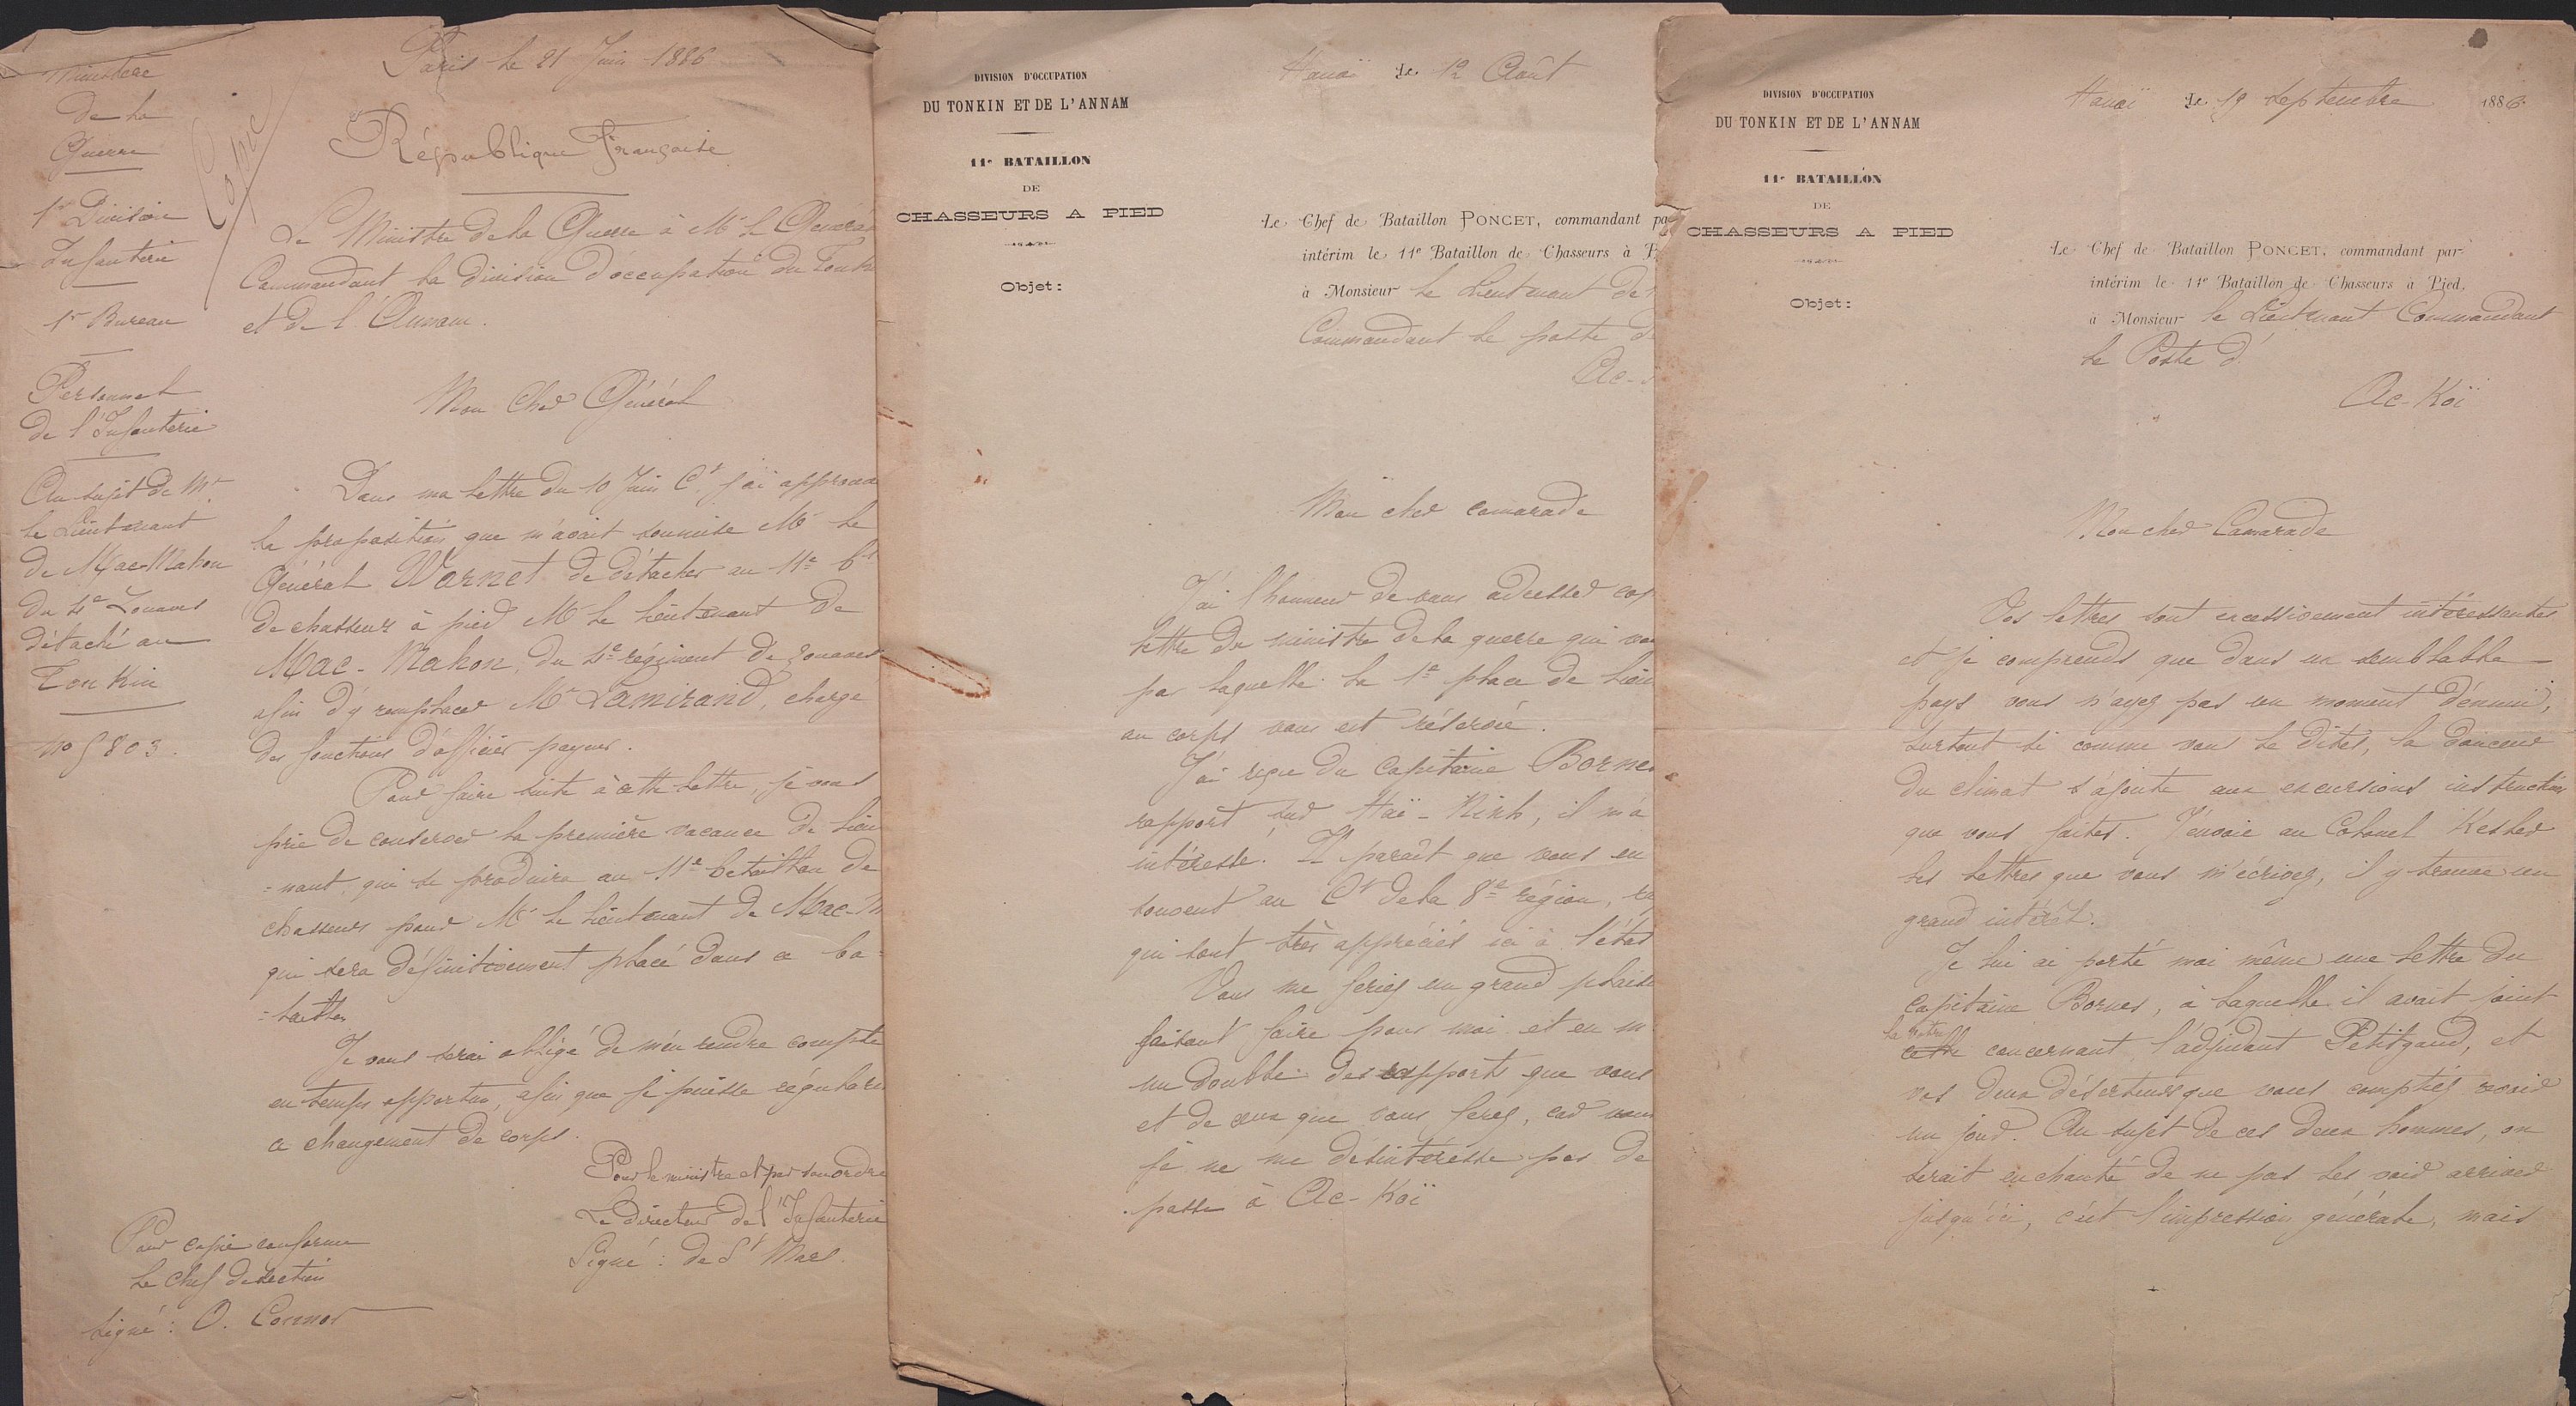 Ministère
de la
Guerre
1re Division
Infanterie
1er Bureau
Personnel
de l'Infanterie
Au sujet de Mr
le Lieutenant
de Mac-Mahon
du 4e Zouaves
détaché au
Tonkin
No 5803.
Copie
Paris le 21 Juin 1886
République Française
Le Ministre de la Guerre à Mr le Général
Commandant la division d'occupation du Tonk
et de l'Annam.
Mon Cher Général
Dans ma lettre du 10 Juin Ct j'ai approuvé
la proposition que m'avait soumise Mr le
Général Warnet de détacher au 11e bon
de chasseurs à pied Mr le Lieutenant de
Mac-Mahon, du 4e régiment de zouaves
afin d'y remplacer Mr Lamirand, chargé
des fonctions d'officier payeur.
Pour faire suite à cette lettre, je vous
prie de conserver la première vacance de lieu
=nant, qui se produira au 11e bataillon de
chasseurs pour Mr le Lieutenant de Mac-M
qui sera définitivement placé dans ce ba=
=taillon
Je vous serai obligé de m'en rendre compte
en temps opportun, afin que je puisse régulari
ce changement de corps.
Pour le ministre et par son ordre
Le Directeur de l'Infanterie
Signé: de St Mars.
Pour copie conforme
Le Chef de section
Signé: O. Connor
DIVISION D'OCCUPATION
DU TONKIN ET DE L'ANNAM
11e BATAILLON
DE
CHASSEURS A PIED
Objet:
Hanoï Le 12 Août
Le Chef de Bataillon PONCET, commandant pa
intérim le 11e Bataillon de Chasseurs à P
à Monsieur le Lieutenant de
Commandant le poste d
Ac-
Mon cher camarade
J'ai l'honneur de vous adresser cop
lettre du ministre de la guerre qui vou
par laquelle la 1e place de lieu
au corps vous est réservée.
J'ai reçu du Capitaine Bornes
rapport sur Haï-Ninh, il m'a
intéressé. Il paraît que vous en
souvent au Ct de la 8e région,
qui sont très appréciés ici à l'état
Vous me feriez un grand plaisi
faisant faire pour moi et en m
un double des rapports que vous
et de ceux que vous ferez, car vous
je ne me désintéresse pas de
passe à Ac-Koï
DIVISION D'OCCUPATION
DU TONKIN ET DE L'ANNAM
11e BATAILLON
DE
CHASSEURS A PIED
Objet:
Hanoï Le 19 Septembre 1886
Le Chef de Bataillon PONCET, commandant par
intérim le 11e Bataillon de Chasseurs à Pied,
à Monsieur le Lieutenant Commandant
le Poste d'
Ac-Koï
Mon cher Camarade
Vos lettres sont excessivement intéressantes
et je comprends que dans un semblable
pays vous n'ayez pas un moment d'ennui,
surtout si comme vous le dites, la douceur
du climat s'ajoute aux excursions instructives
que vous faites. J'envoie au Colonel Kesler
les lettres que vous m'écrivez, il y trouve un
grand intérêt.
Je lui ai porté moi même une lettre du
capitaine Bornes, à laquelle il avait joint
la vôtre
celle concernant l'adjudant Petitgand, et
vos deux déserteurs que vous comptiez ravoir
un jour. Au sujet de ces deux hommes, on
serait enchanté de ne pas les voir arriver
jusqu'ici, c'est l'impression générale, mais